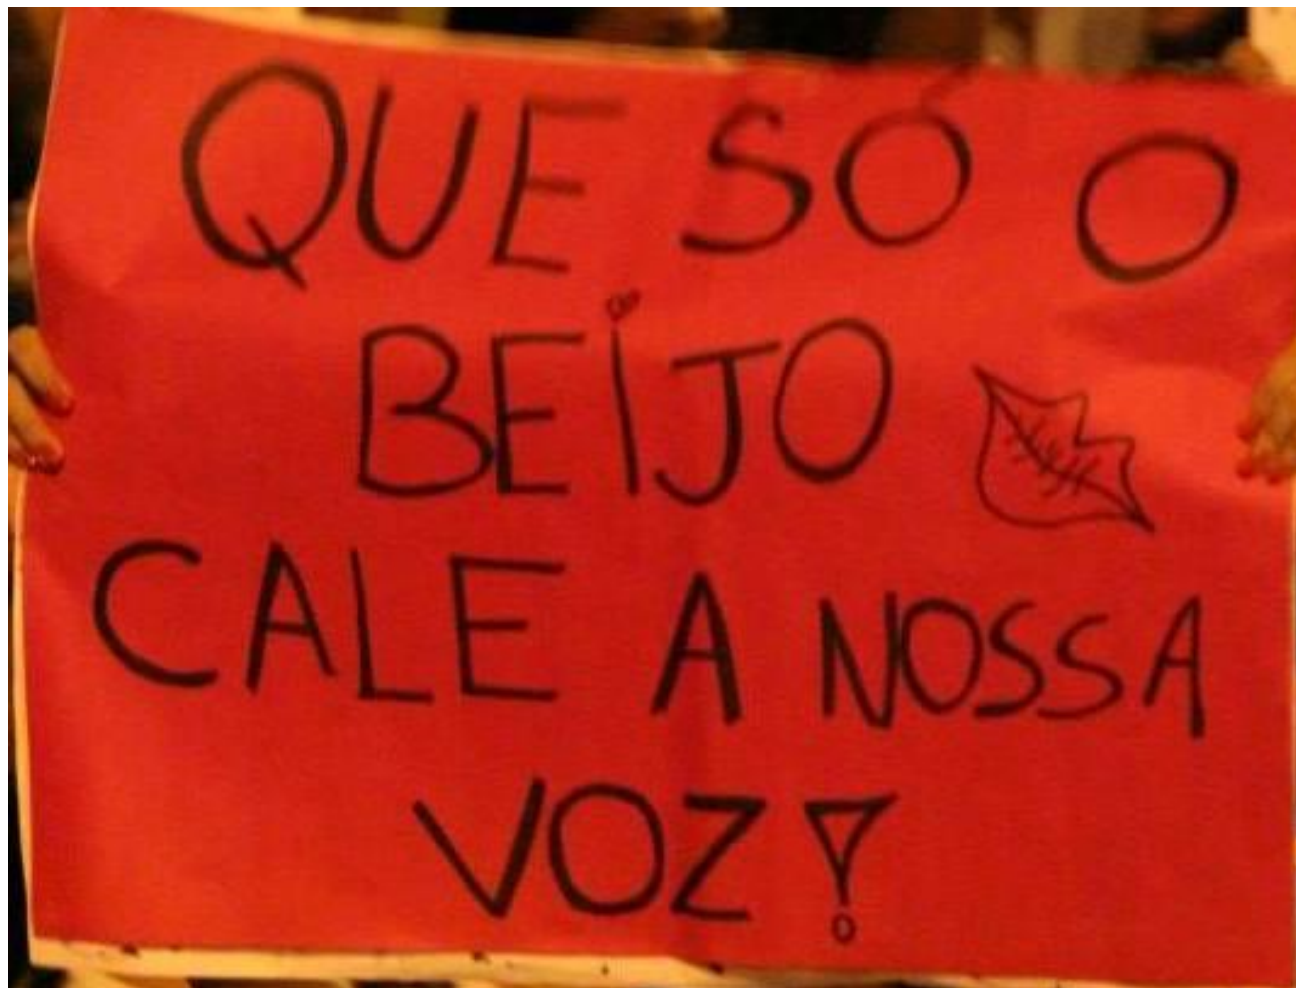 QUE SÓ O
BEIJO
CALE A NOSSA
VOZ!